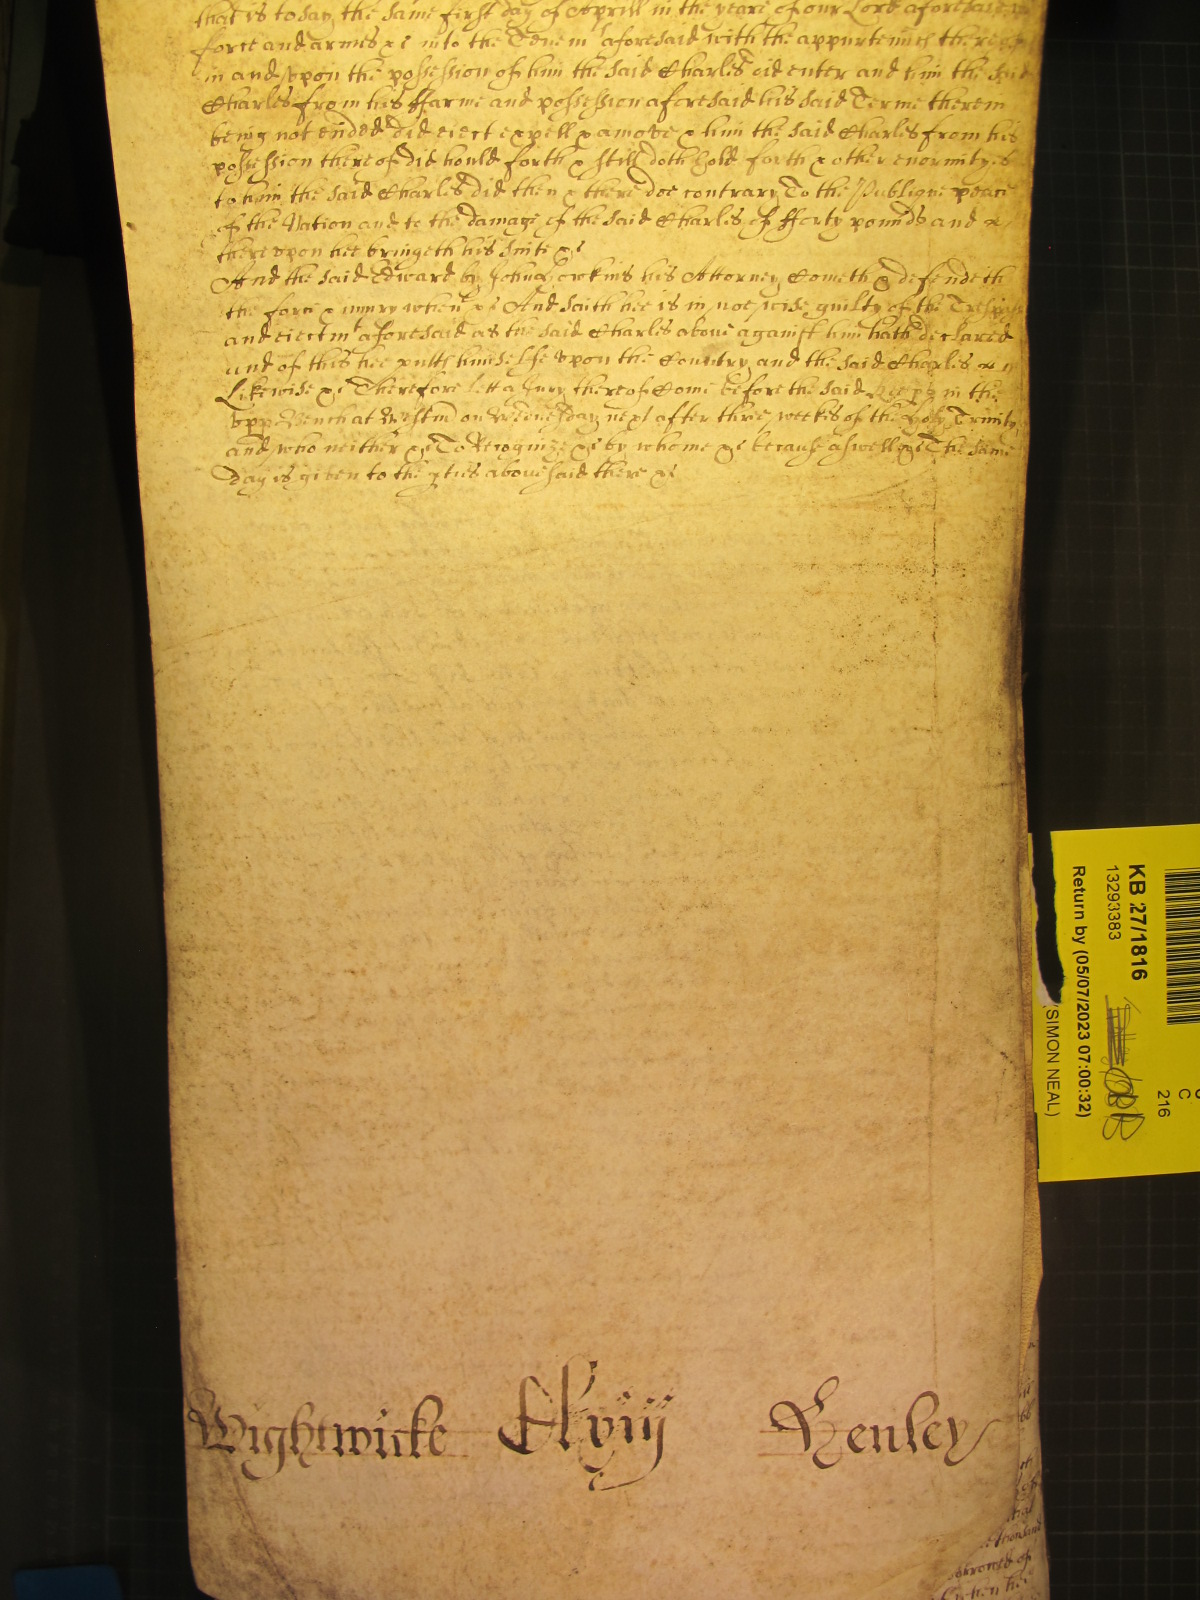 that is to say the same first day of Aprill in the yeare of our Lord aforesaid
force and armes &c into the Tenem aforesaid with the appurtenncs
in and upon the possession of him the said Charles did enter and him the said
Charles from his ffarme and possession aforesaid his said Terme therein
being not ended did eiect expell & amove & him the said Charles from his
possession thereof did hould forth & still doth hold forth & other enormityes
to him the said Charles did then & there doe contrary To the Publique peace
of the Nation and to the damage of the said Charles of fforty pounds and
there upon hee bringeth his suite &c
And the said Edward by John Jenkins his Attorney Cometh & defendeth
the force & iniury when &c And saith hee is in noe wise guilty of the Trespas
and eiectmt aforesaid as the said Charles above against him hath declared
and of this hee putts himselfe upon the Country and the said Charles
Likewise &c Therefore lett a Jury thereof Come before the said in the
upp Bench at Westmr on Wednesday next after three weekes of the holy Trinity
and who neither &c To Recognize &c by whome &c because aswell &c The same
Day is given to the pties abovesaid there &c
Wightwicke Clxviij Henley
KB 27/1816
13293383
Return by (05/07/2023 07:00:32)
(SIMON NEAL)
C
216